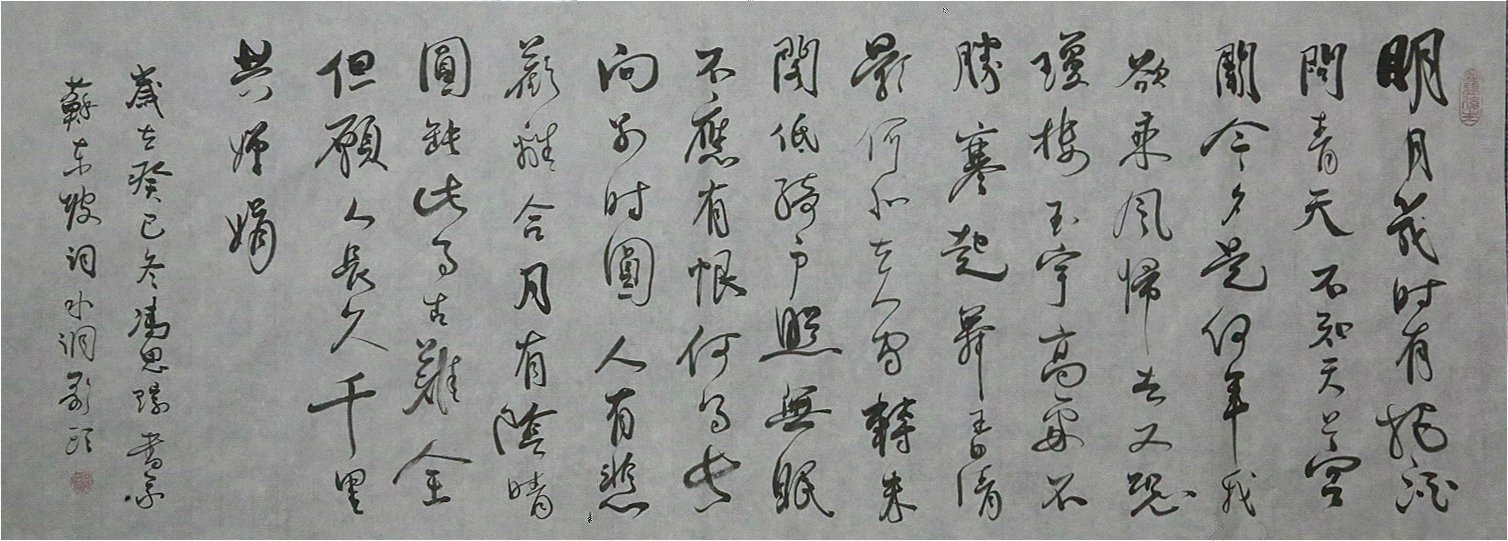 明月幾时有把酒
問青天不知天上宮
闕今夕是何年我
欲乘风歸去又恐
瓊樓玉宇高處不
勝寒起舞弄清
影何似在人间轉朱
閣低綺户照無眠
不應有恨何事长
向别时圓人有悲
歡離合月有陰晴
圓缺此事古難全
但願人長久千里
共嬋娟
歲在癸巳冬馮思書录
蘇东坡词水调歌头